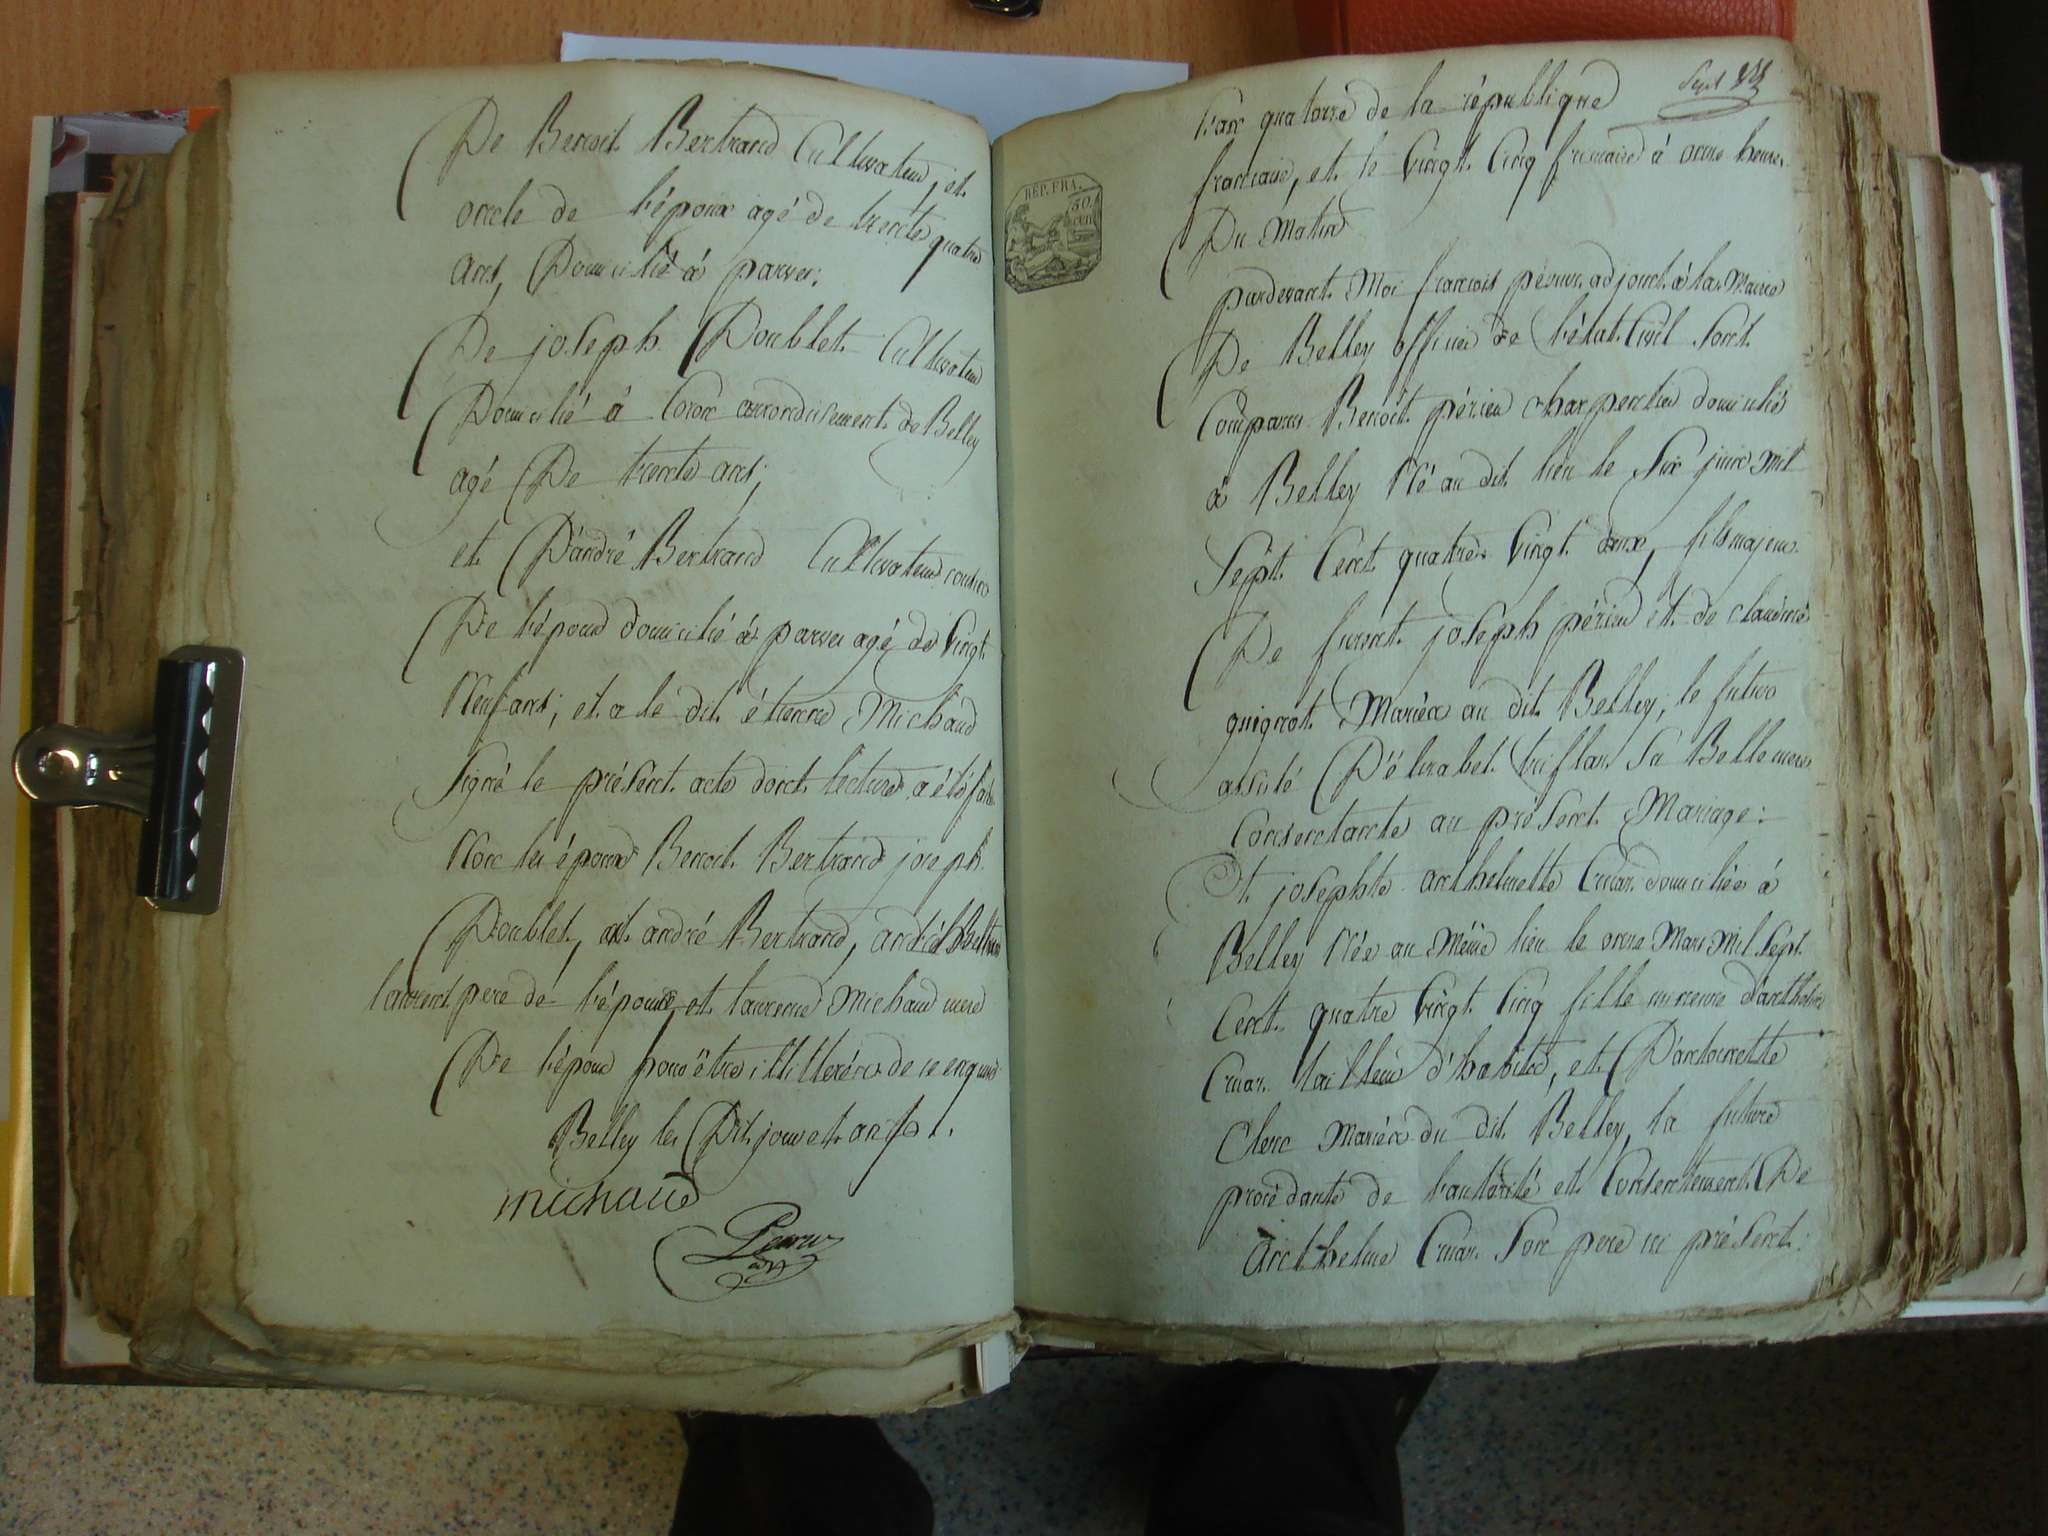 De Benoit Bertrand Cultivateur, et
oncle de l'époux agé de trente quatre
ans, Domicilié à parves:
De joseph Doublet Cultivateur
Domicilié à Coron arrondissement de Belley
agé De trente ans;
et D'andré Bertrand Cultivateur cousin
De l'époux domicilié à parves agé de Vingt
Neuf ans; et a le dit étienne Michaud
signé le présent acte dont lecture a été faite
Non les époux Benoit Bertrand joseph
Doublet, et andré Bertrand, andré
laurent pere de l'épouse et laurence Michaud mere
De l'époux pour être illitterés de ce enquis
Belley les Dit jour et an
michaud
Peysson
adjt
Sept
L'an quatorze de la république
francaise, et le Vingt Cinq frimaire à onze heures
Du Matin
pardevant Moi françois adjoint à la Mairie
De Belley officier de l'état Civil Sont
Comparus Benoît périeu charpentier domicilié
à Belley Né au dit lieu le Six juin mil
Sept Cent quatre Vingt deux, fils majeur
De furent joseph périeu et de claudine
guignot Mariés au dit Belley, le futur
assisté D'élisabet Sa Bellemere
Consentante au présent Mariage:
Et josephte anthelmette Cruar domiciliée à
Belley Née au Même lieu le onze Mars Mil Sept
Cent quatre Vingt Cinq fille mineure d'anthelme
Cruar tailleur d'habits, et D'antoinette
Clerc Mariés du dit Belley, la future
procédante de l'autorité et Consentement De
Anthelme Cruar Son pere ici présent:
RÉP. FRA.
50.
cent